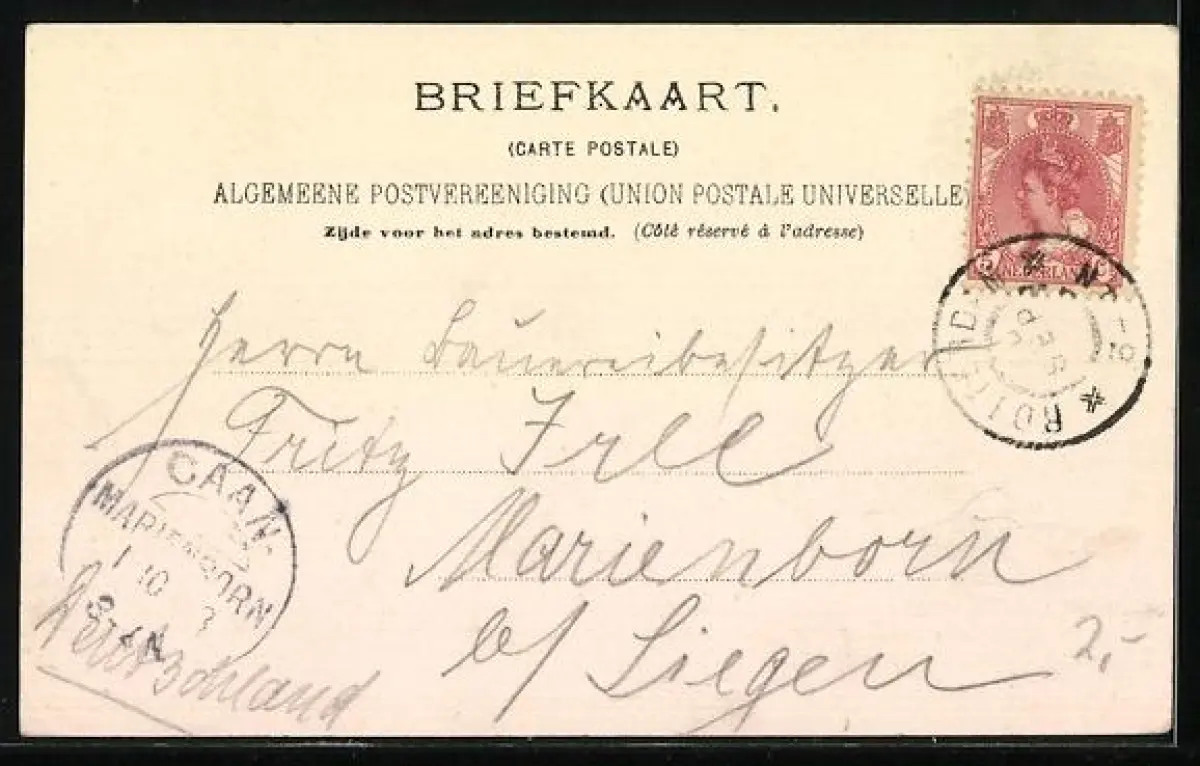 BRIEFKAART.
(CARTE POSTALE)
ALGEMEENE POSTVEREENIGING (UNION POSTALE UNIVERSELLE)
Zijde voor het adres bestemd. (Côté réservé à l'adresse)
5 NEDERLAND C
Herrn Bauereibesitzer
Fritz Irle
Marienborn
b/ Siegen
2,-
Deutschland
CAAN-
MARIENBORN
1 10 3
8